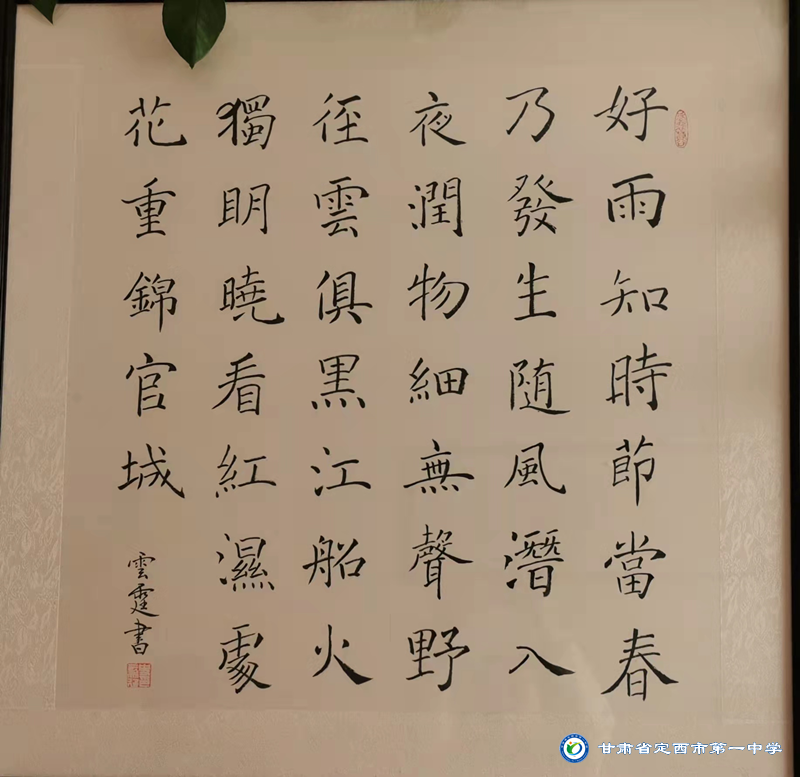 好雨知時節當春
乃發生随風潛入
夜潤物細無聲野
徑雲俱黒江船火
獨明曉看紅濕處
花重錦官城
雲霆書
甘肃省定西市第一中学